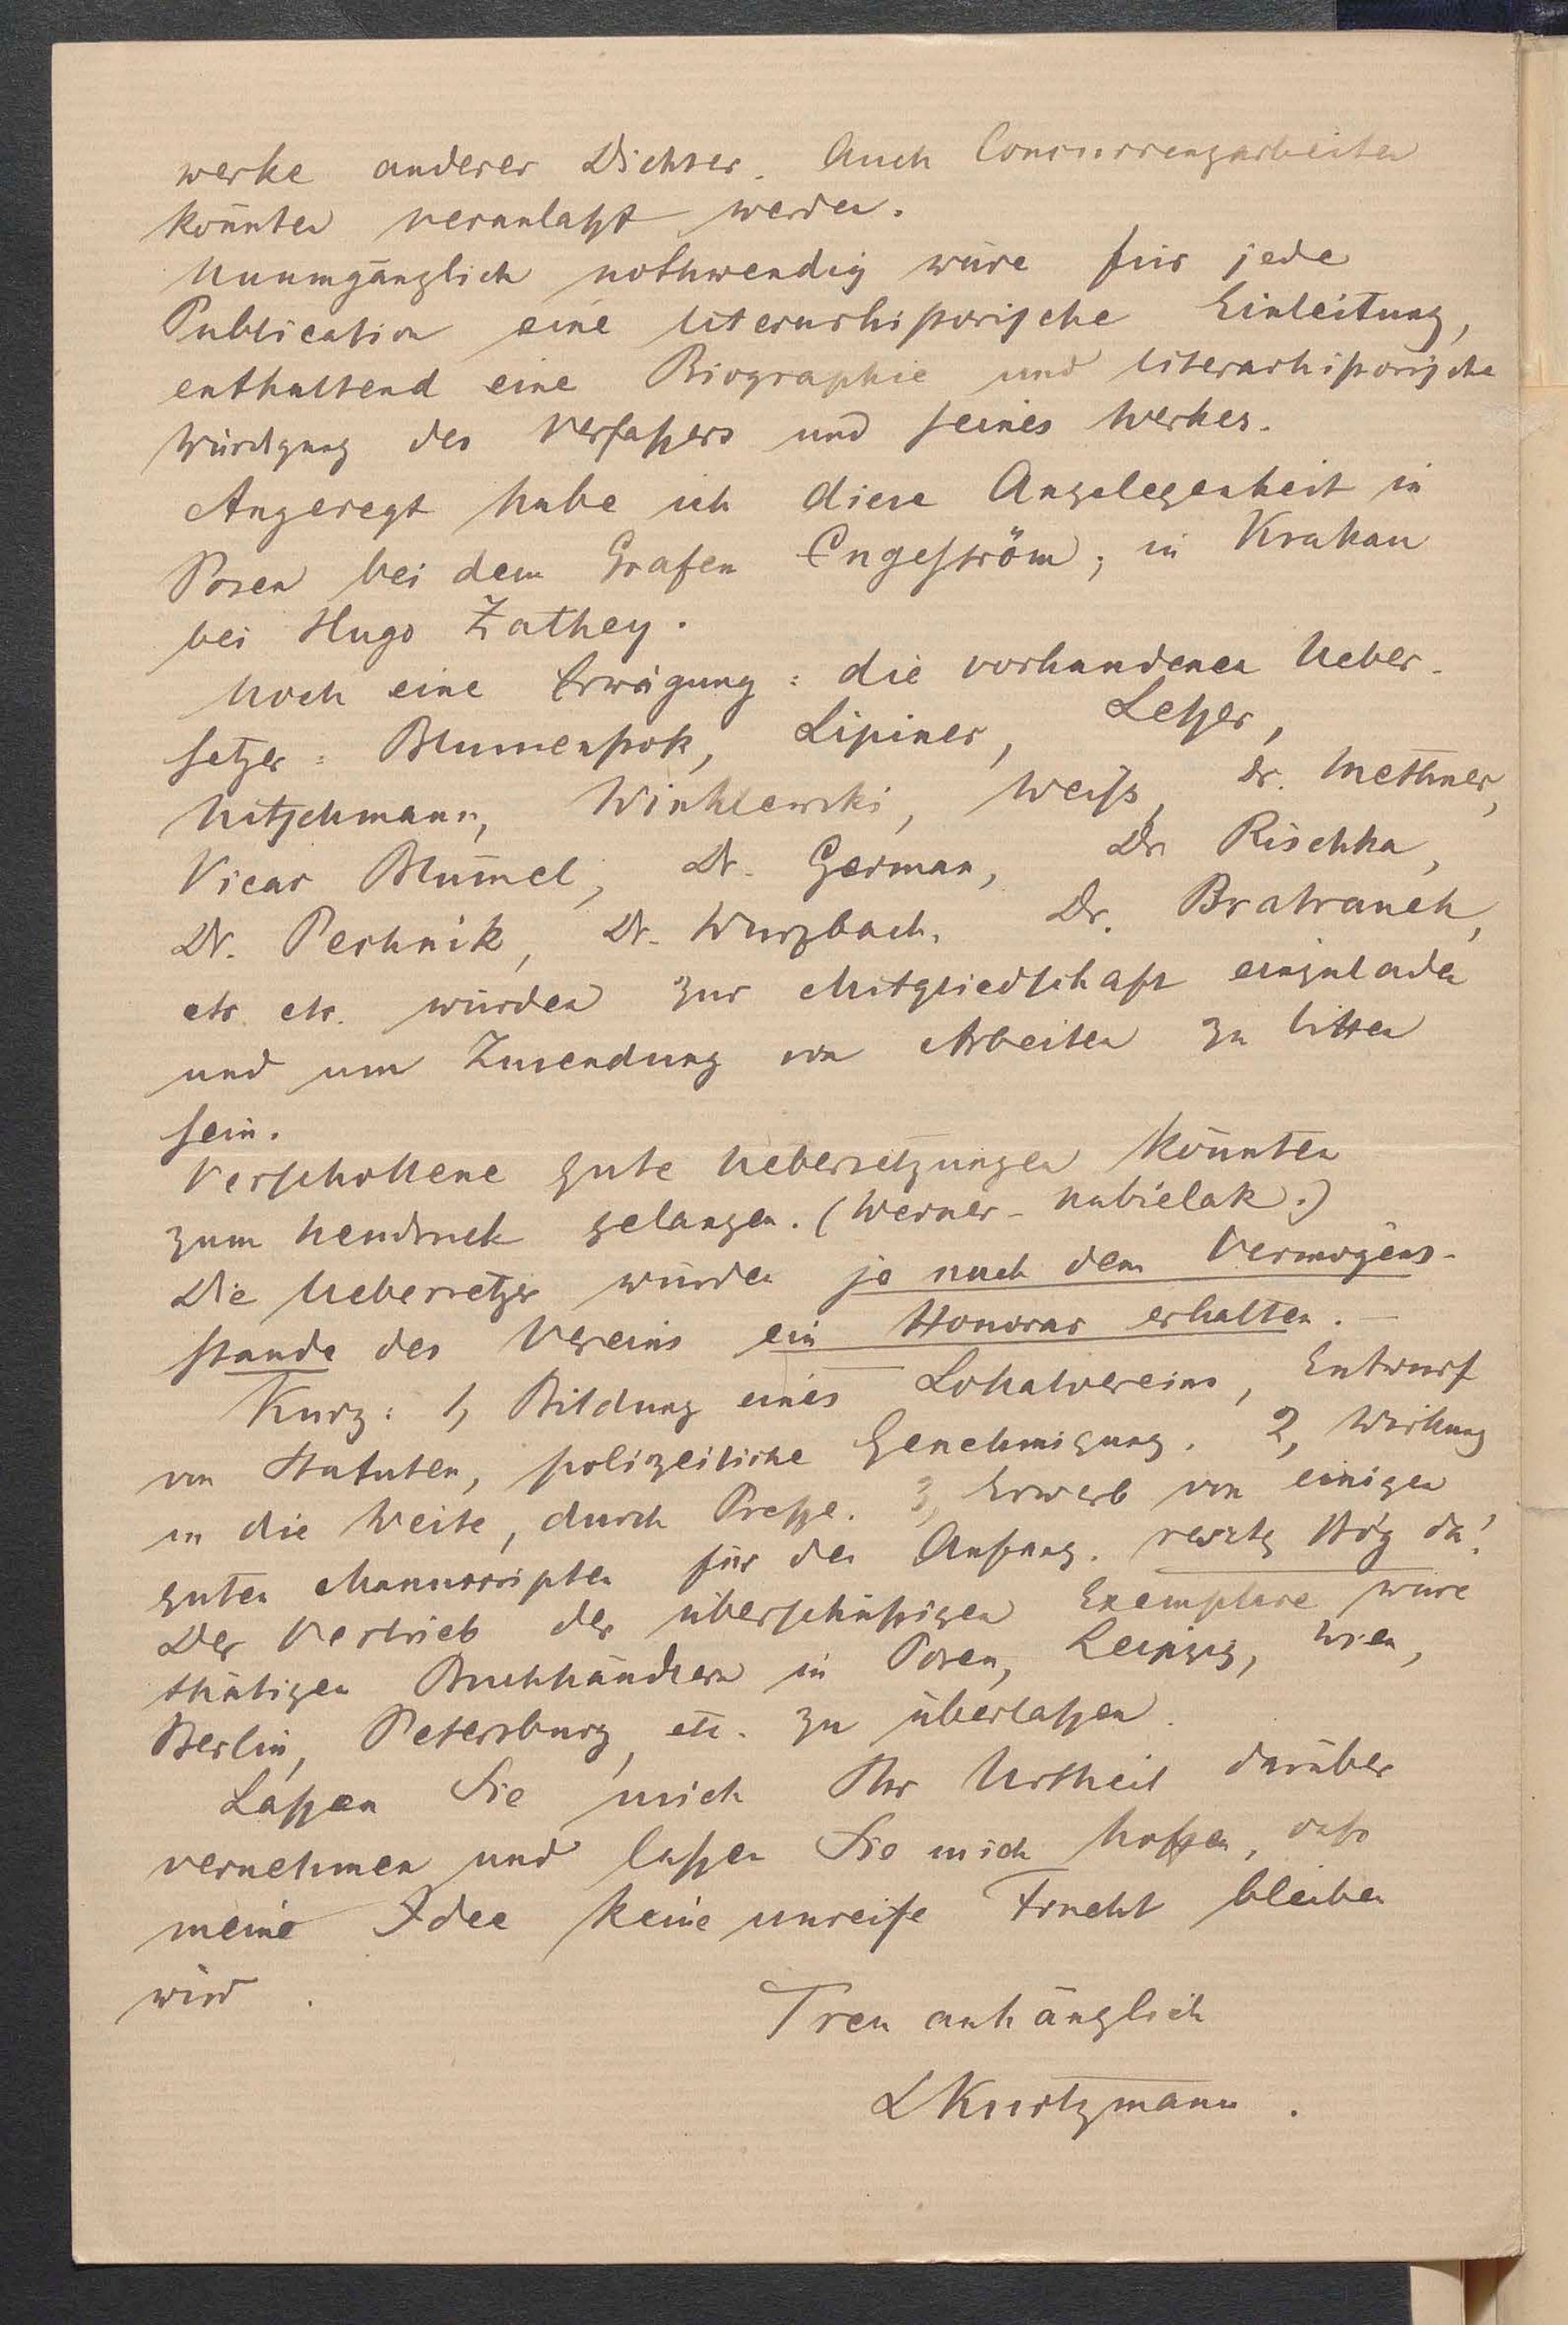 werke anderer Dichter. Auch Concurrenzarbeiten
könnten veranlaßt werden.
Unumgänglich nothwendig wäre für jede
Publication eine literarhistorische Einleitung,
enthaltend eine Biographie und literarhistorische
Würdigung des Verfaßers und seines Werkes.
Angeregt habe ich diese Angelegenheit in
Posen bei dem Grafen Engeström; in Krakau
bei Hugo Zathey.
Noch eine Erwägung: die vorhandenen Ueber-
setzer: Blumenstok, Lipiner, Leßer,
Nitschmann, Winklewski, Weiß, Dr. Methner,
Vicar Blümel, Dr. German, Dr Rischka,
Dr. Perknik, Dr. Wurzbach, Dr. Bratranek,
etc. etc. würden zur Mitgliedschaft einzuladen
und um Zusendung von Arbeiten zu bitten
sein.
Verschollene gute Uebersetzungen könnten
zum Neudruck gelangen. (Werner-Nabielak.)
Die Uebersetzer würden je nach dem Vermögens-
stande des Vereins ein Honorar erhalten. —
Kurz: 1, Bildung eines Lokalvereins, Entwurf
von Statuten, polizeiliche Genehmigung. 2, Wirkung
in die Weite, durch Preße. 3, Erwerb von einigen
guten Manuscripten für den Anfang. resztę Bóg da!
Der Vertrieb der überschüßigen Exemplare wäre
thätigen Buchhändlern in Posen, Leipzig, Wien,
Berlin, Petersburg, etc. zu überlaßen.
Laßen Sie mich Ihr Urtheil darüber
vernehmen und laßen Sie mich hoffen, daß
meine Idee keine unreife Frucht bleiben
wird.
Treu anhänglich
LKurtzmann.